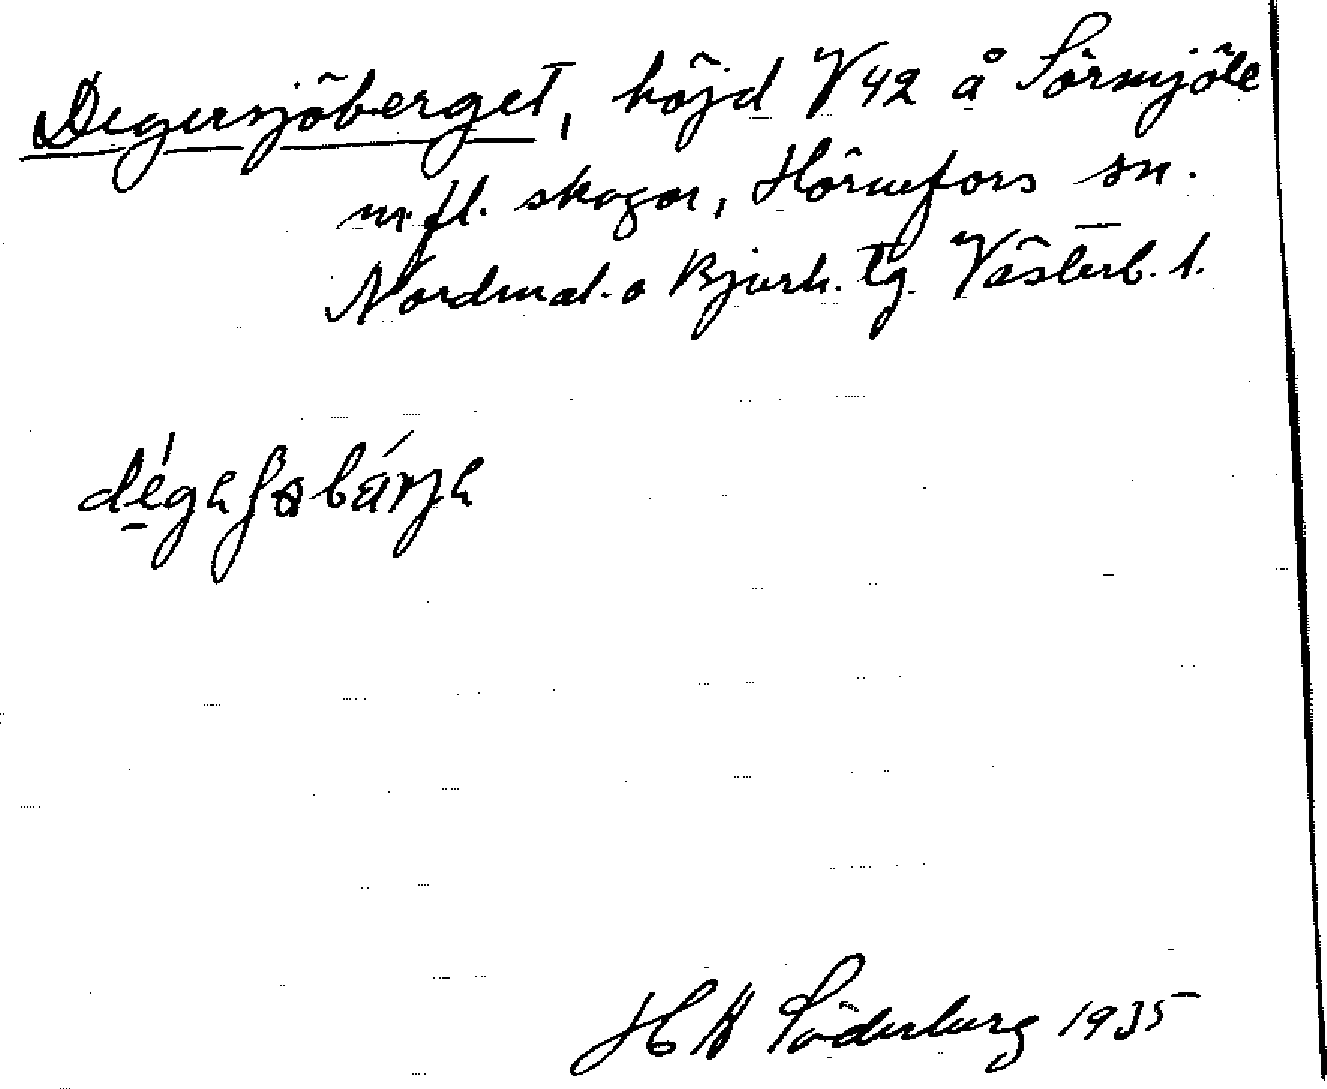 Degersjöberget, höjd V 42 å Sörmjöle
m.fl. skogar, Hörnefors sn.
Nordmal. o Bjurh. tg. Västerb. l.
H Söderberg 1935